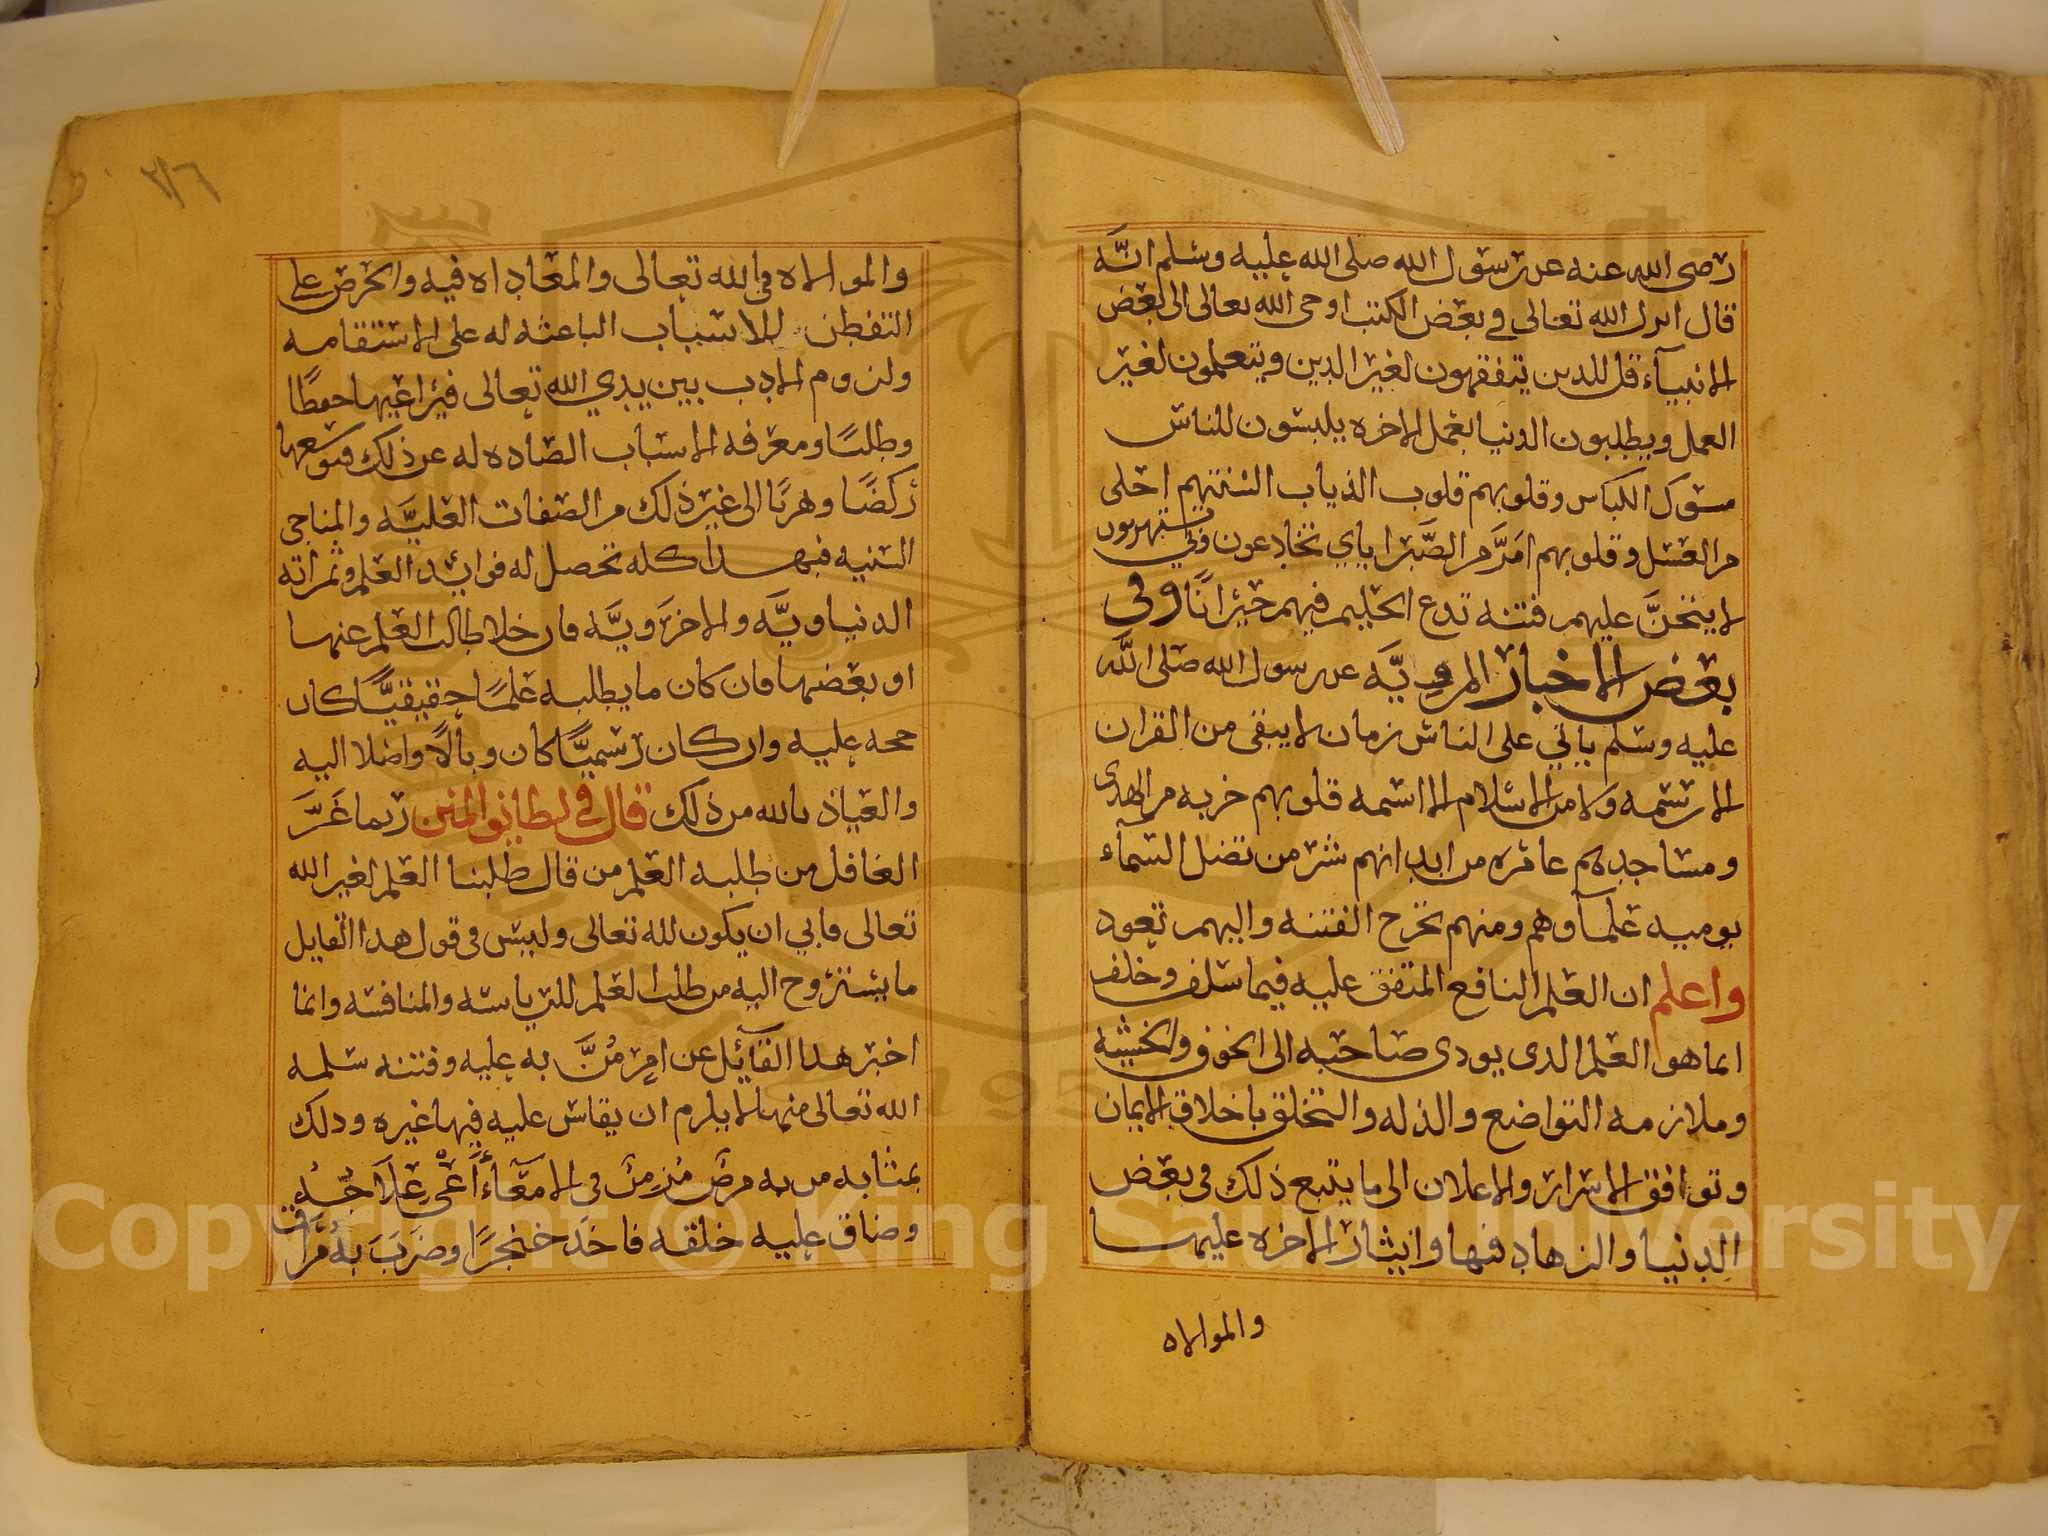 رضى الله عنه عن رسول الله صلى الله عليه وسلم انَّه
قال انزل الله تعالى في بعض الكتب اوحى الله تعالى الى بعض
الانبيآء قل للذين يتفقهون لغير الدين ويتعلمون لغير
العمل ويطلبون الدنيا بعمل الاخره يلبسون للناس
مسوك الكباس وقلوبهم قلوب الذياب السنتهم احلى
من العسل وقلوبهم امَرَّ من الصَّبر اياي يخادعون وبي يستهزءون
لا يتخنَّ عليهم فتنه تدع الحليم فيهم حيرانًا وفى
بعض الاخبار المرويَّه عن رسول الله صلى الله
عليه وسلم ياتي على الناس زمان لا يبقى من القران
الا رسمه ولا من الاسلام الا اسمه قلوبهم خربه من الهدى
ومساجدهم عامره من ابدانهم شر من تضل السمآء
يوميه علمآوهم ومنهم تخرج الفتنه واليهم تعود
واعلم ان العلم النافع المتفق عليه فيما سلف وخلف
انما هو العلم الذى يودى صاحبه الى الخوف والخشيه
وملازمه التواضع والذله والتخلق باخلاق الايمان
وتوافق الاسرار والاعلان الى ما يتبع ذلك في بعض
الدنيا والزهاد فيها وايثار الاخره عليها
والموالاه
٢١٦
والموالاه في الله تعالى والمعاداه فيه والحرص على
التفطن للاسباب الباعثه له على الاستقامه
ولزوم الادب بين يدي الله تعالى فيراعيها حفظًا
وطلبًا ومعرفه الاسباب الصاده له عن ذلك فيوسعها
ركضًا وهربًا الى غير ذلك من الصفات العليَّه والمناحى
السنيه فبهذا كله تحصل له فوائد العلم وثمراته
الدنياويَّه والاخرَويَّه فان خلا طالب العلم عنها
او بعضها فان كان ما يطلبه علمًا حقيقيًّا كان
حجه عليه وان كان رسميًّا كان وبالًا واصلا اليه
والعياذ بالله من ذلك قال في لطايف المنن ربما غَرَّ
الغافل من طلبه العلم من قال طلبنا العلم لغير الله
تعالى فابي ان يكون لله تعالى وليس في قول هذا القايل
ما يستروح اليه من طلب العلم للرياسه والمنافسه وانما
اخبر هذا القآئل عن امرٍ مُنَّ به عليه وفتنه سلمه
الله تعالى منها لا يلزم ان يقاس عليه فيها غيره وذلك
بمثابه من به مرض مُزمِن في الامعَآء أَعْيى عِلَاجُه
وضاق عليه خلقه فاخَذ خنجرًا وضَرَبَ به مَرَاقَّ
Copyright © King Saud University
1957